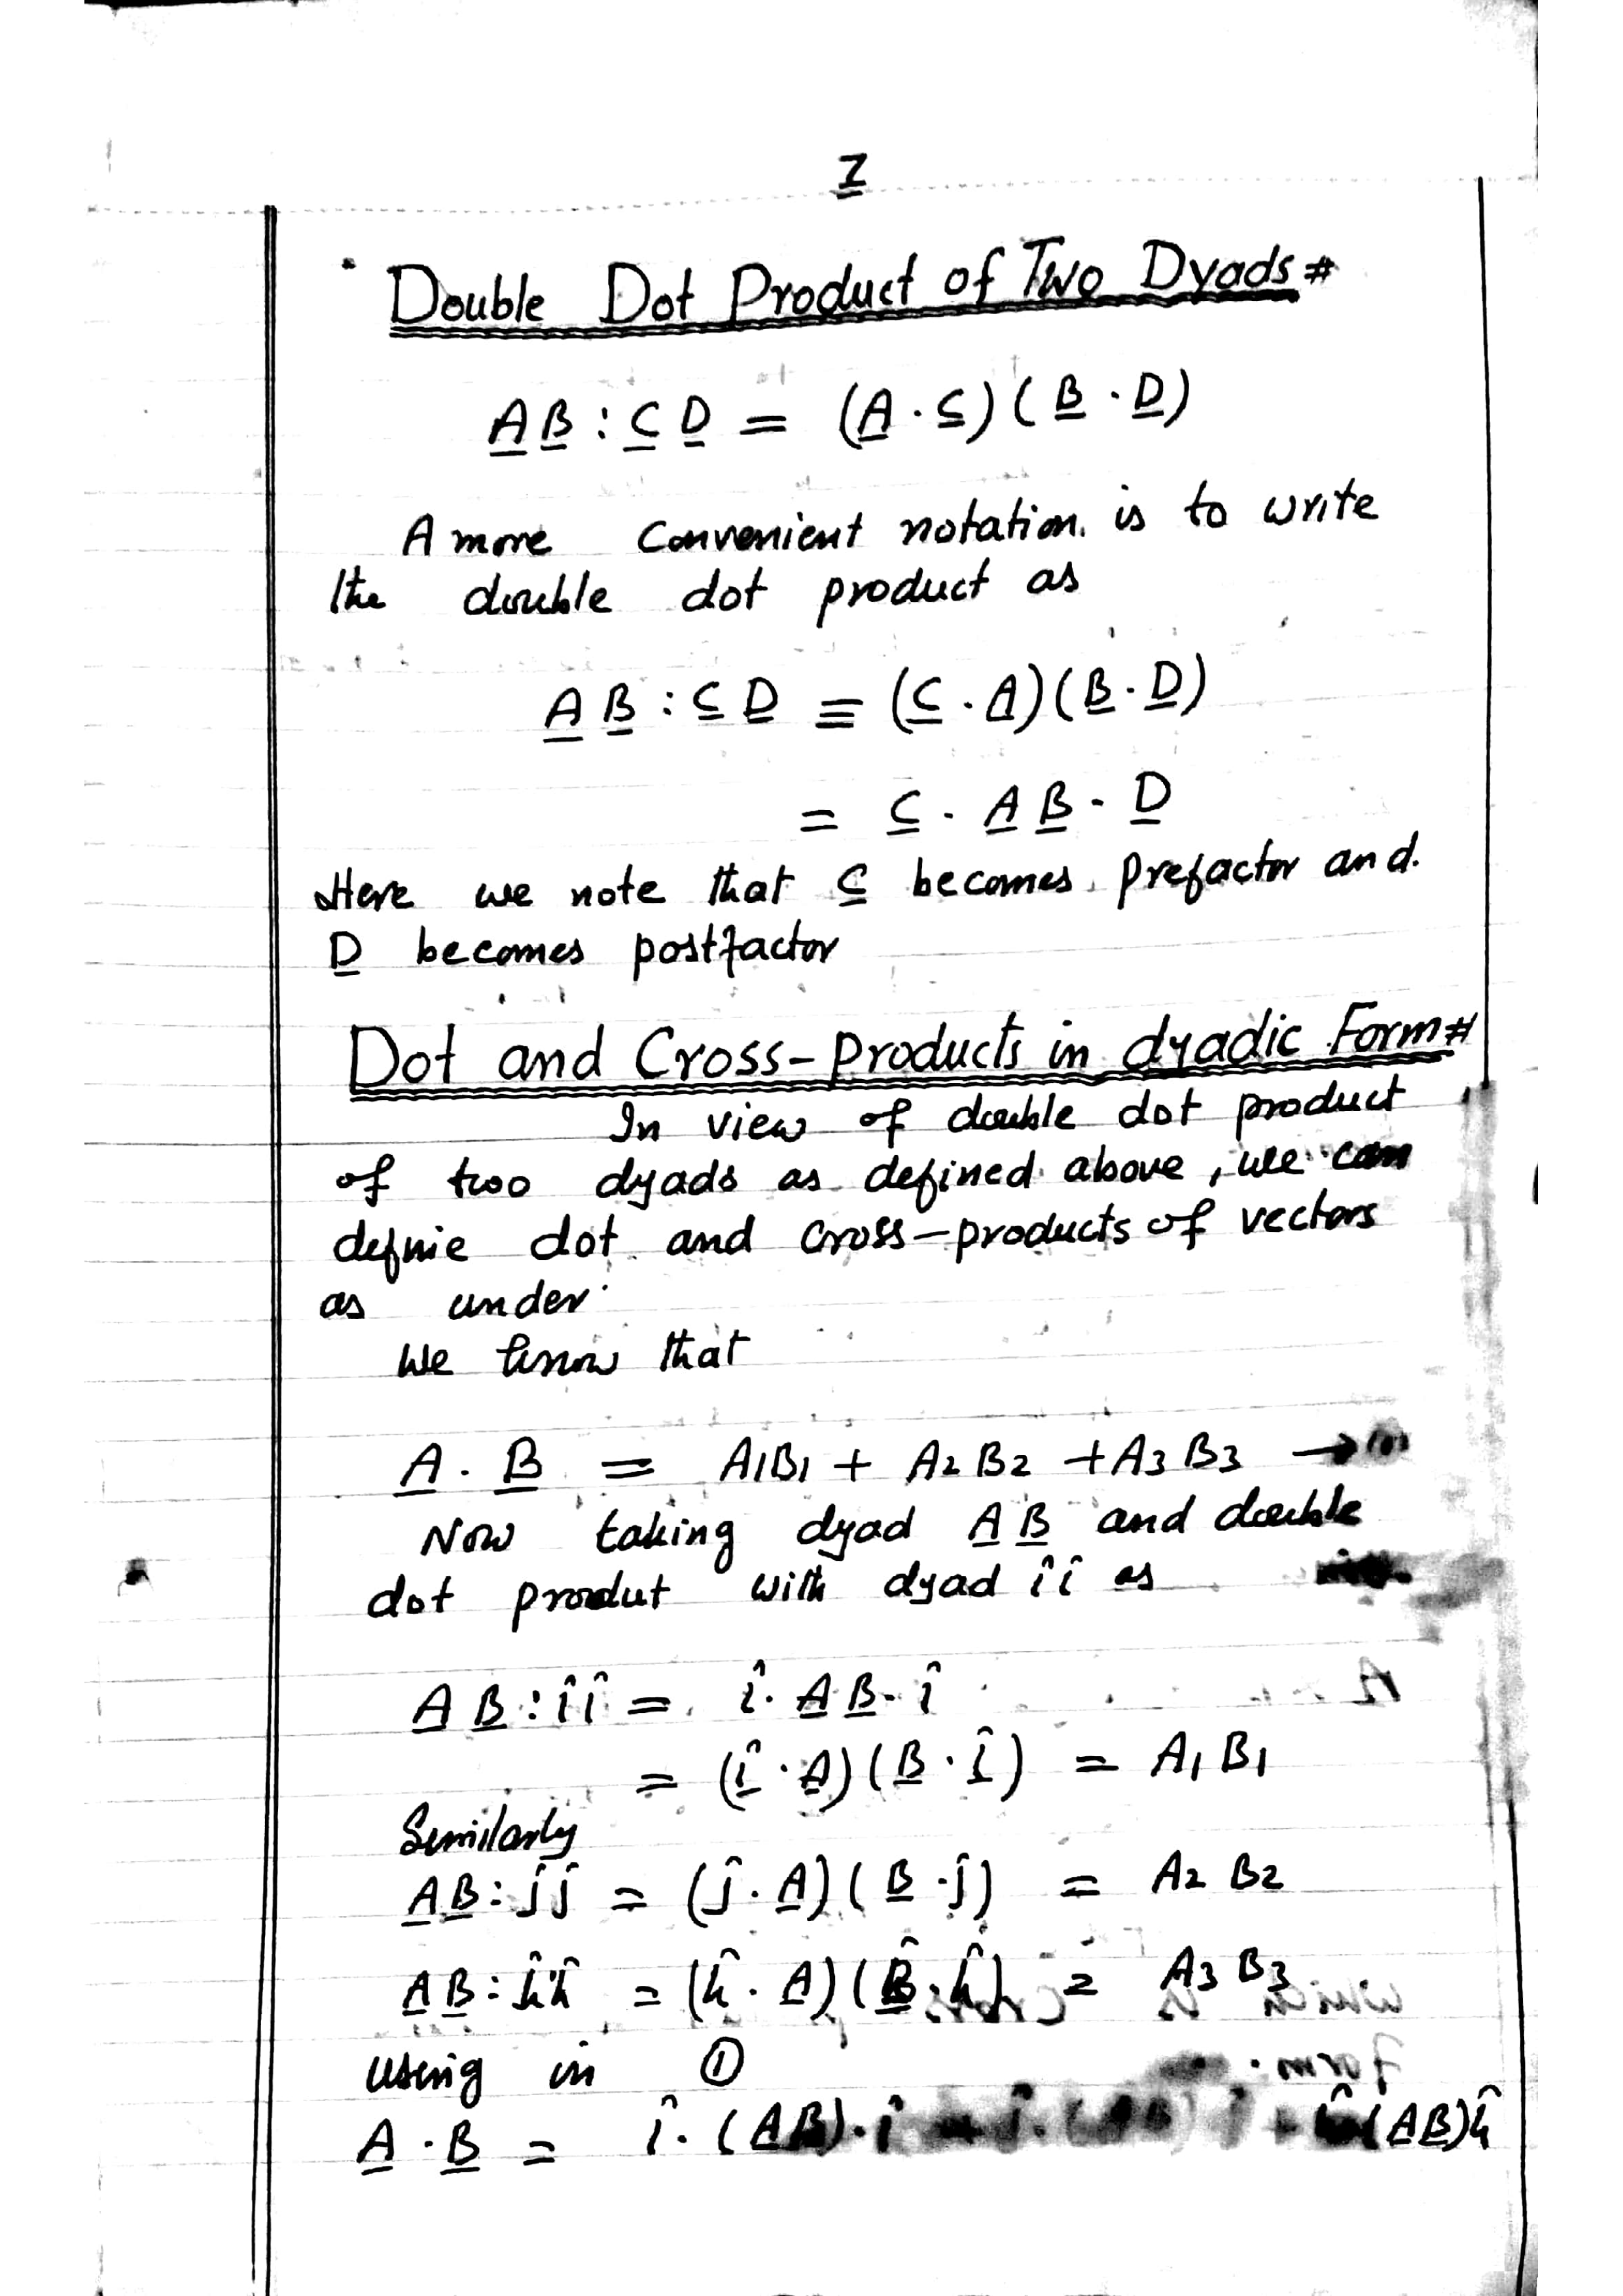 7
Double Dot Product of Two Dyads #
A B : C D = (A · C) ( B · D)
A more convenient notation is to write
the double dot product as
A B : C D ≡ (C · A) (B · D)
= C · A B · D
Here we note that C becomes Prefactor and.
D becomes postfactor
Dot and Cross-Products in dyadic Form #
In view of double dot product
of two dyads as defined above, we can
define dot and cross-products of vectors
as under
We know that
A . B = A1B1 + A2 B2 + A3 B3 →
Now taking dyad A B and double
dot produt with dyad î î as
A B : î î = î · A B · î
= (î · A) (B · î) = A1 B1
Similarly
A B : ĵ ĵ = (ĵ · A) (B · ĵ) = A2 B2
A B : k̂ k̂ = (k̂ · A) (B · k̂) = A3 B3
using in ①
A · B = î · (A B) · î + ĵ · (A B) ĵ + k̂ (A B) k̂